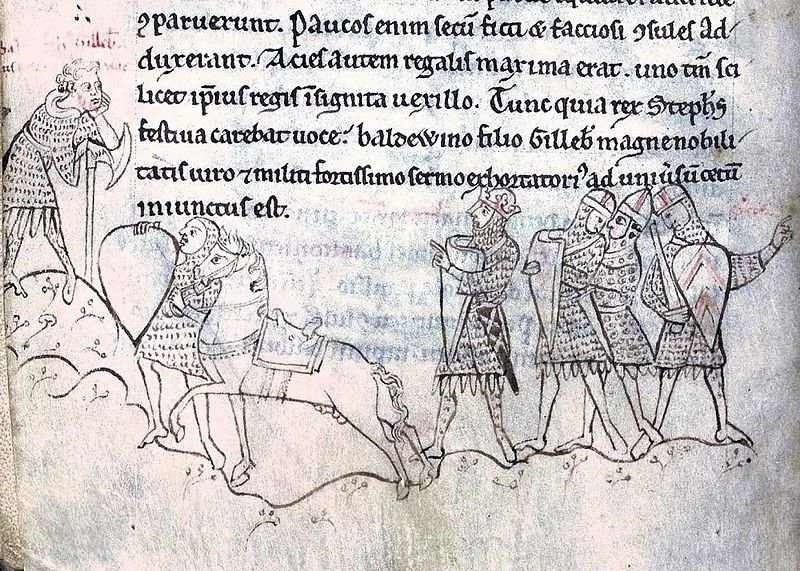 ꝯparuerunt. Paucos enim secū ficti & factiosi ꝯsules ad-
duxerant. Acies autem regalis maxima erat. uno tm̄ sci
licet ip̄ius regis īsignita uexillo. Tunc quia rex Stephs̄
festiua carebat uoce. baldewino filio Gilleb̄ magne nobili-
tatis uiro ⁊ militi fortissimo sermo exhortatoriꝰ ad uniũsū cetū
iniunctus est.